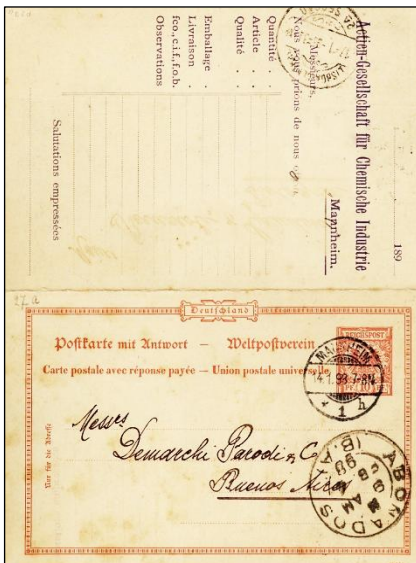 189
Actien-Gesellschaft für Chemische Industrie
Mannheim.
Messieurs,
Nous vous prions de nous
Quantité
Article
Qualité
Emballage
Livraison
fco., c.i.f., f.o.b.
Observations
Salutations empressées
27 a
Deutschland
Postkarte mit Antwort — Weltpostverein
Carte postale avec réponse payée — Union postale universelle
REICHSPOST
MANNHEIM
14.1.98 7-8N
1 h
Nur für die Adresse
Messrs
Demarchi Parodi & C
Buenos Aires
ABONADOS
(B.A.)